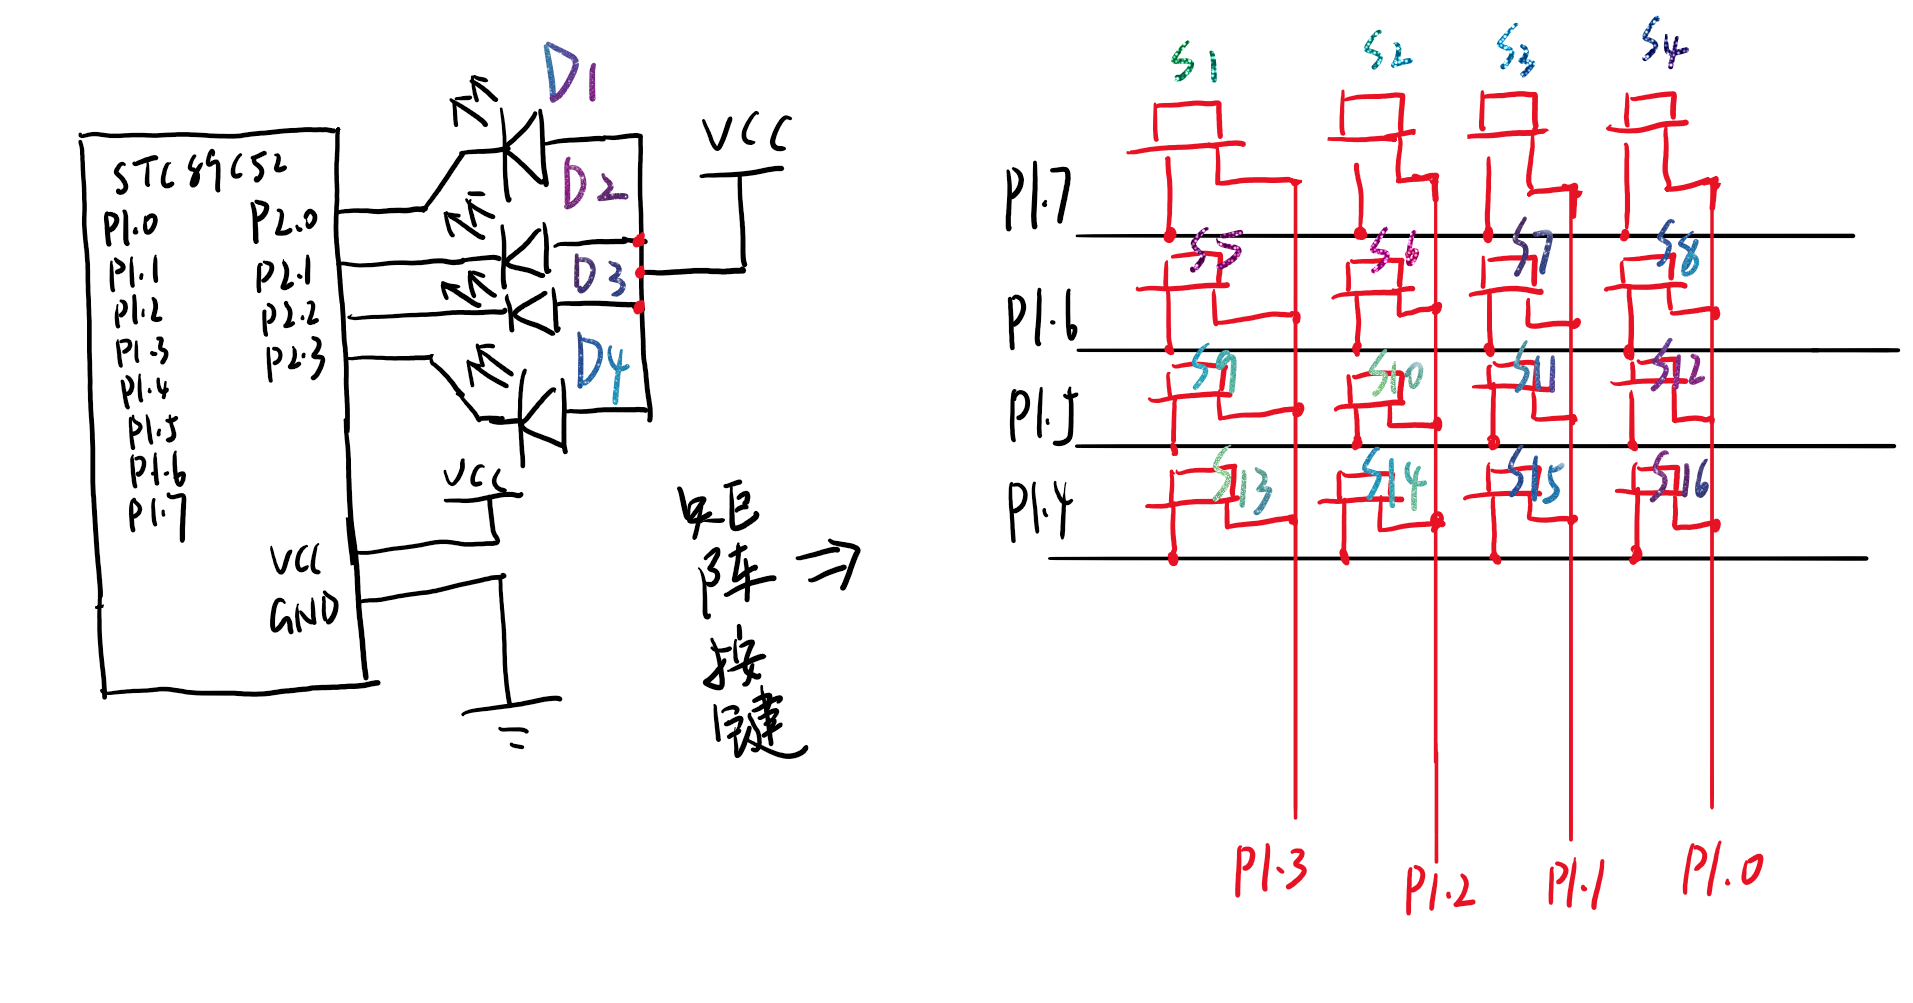 STC89C52
P1.0
P1.1
P1.2
P1.3
P1.4
P1.5
P1.6
P1.7
P2.0
P2.1
P2.2
P2.3
VCC
GND
D1
D2
D3
D4
VCC
VCC
矩
阵
按
键
S1 S2 S3 S4
P1.7
S5 S6 S7 S8
P1.6
S9 S10 S11 S12
P1.5
S13 S14 S15 S16
P1.4
P1.3 P1.2 P1.1 P1.0